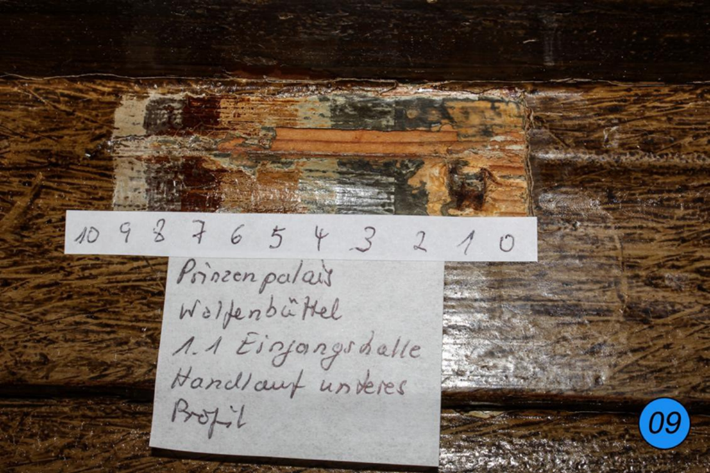 10 9 8 7 6 5 4 3 2 1 0
Prinzenpalais
Wolfenbüttel
1.1 Eingangshalle
Handlauf unteres
Profil
09